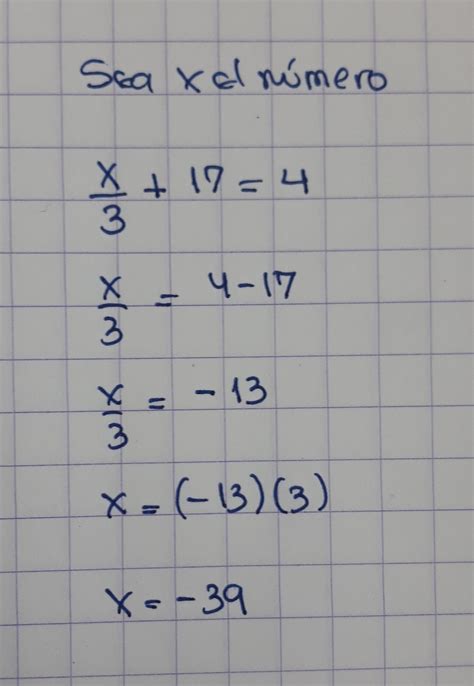 Sea x el número
x/3 + 17 = 4
x/3 = 4-17
x/3 = -13
x = (-13)(3)
x = -39